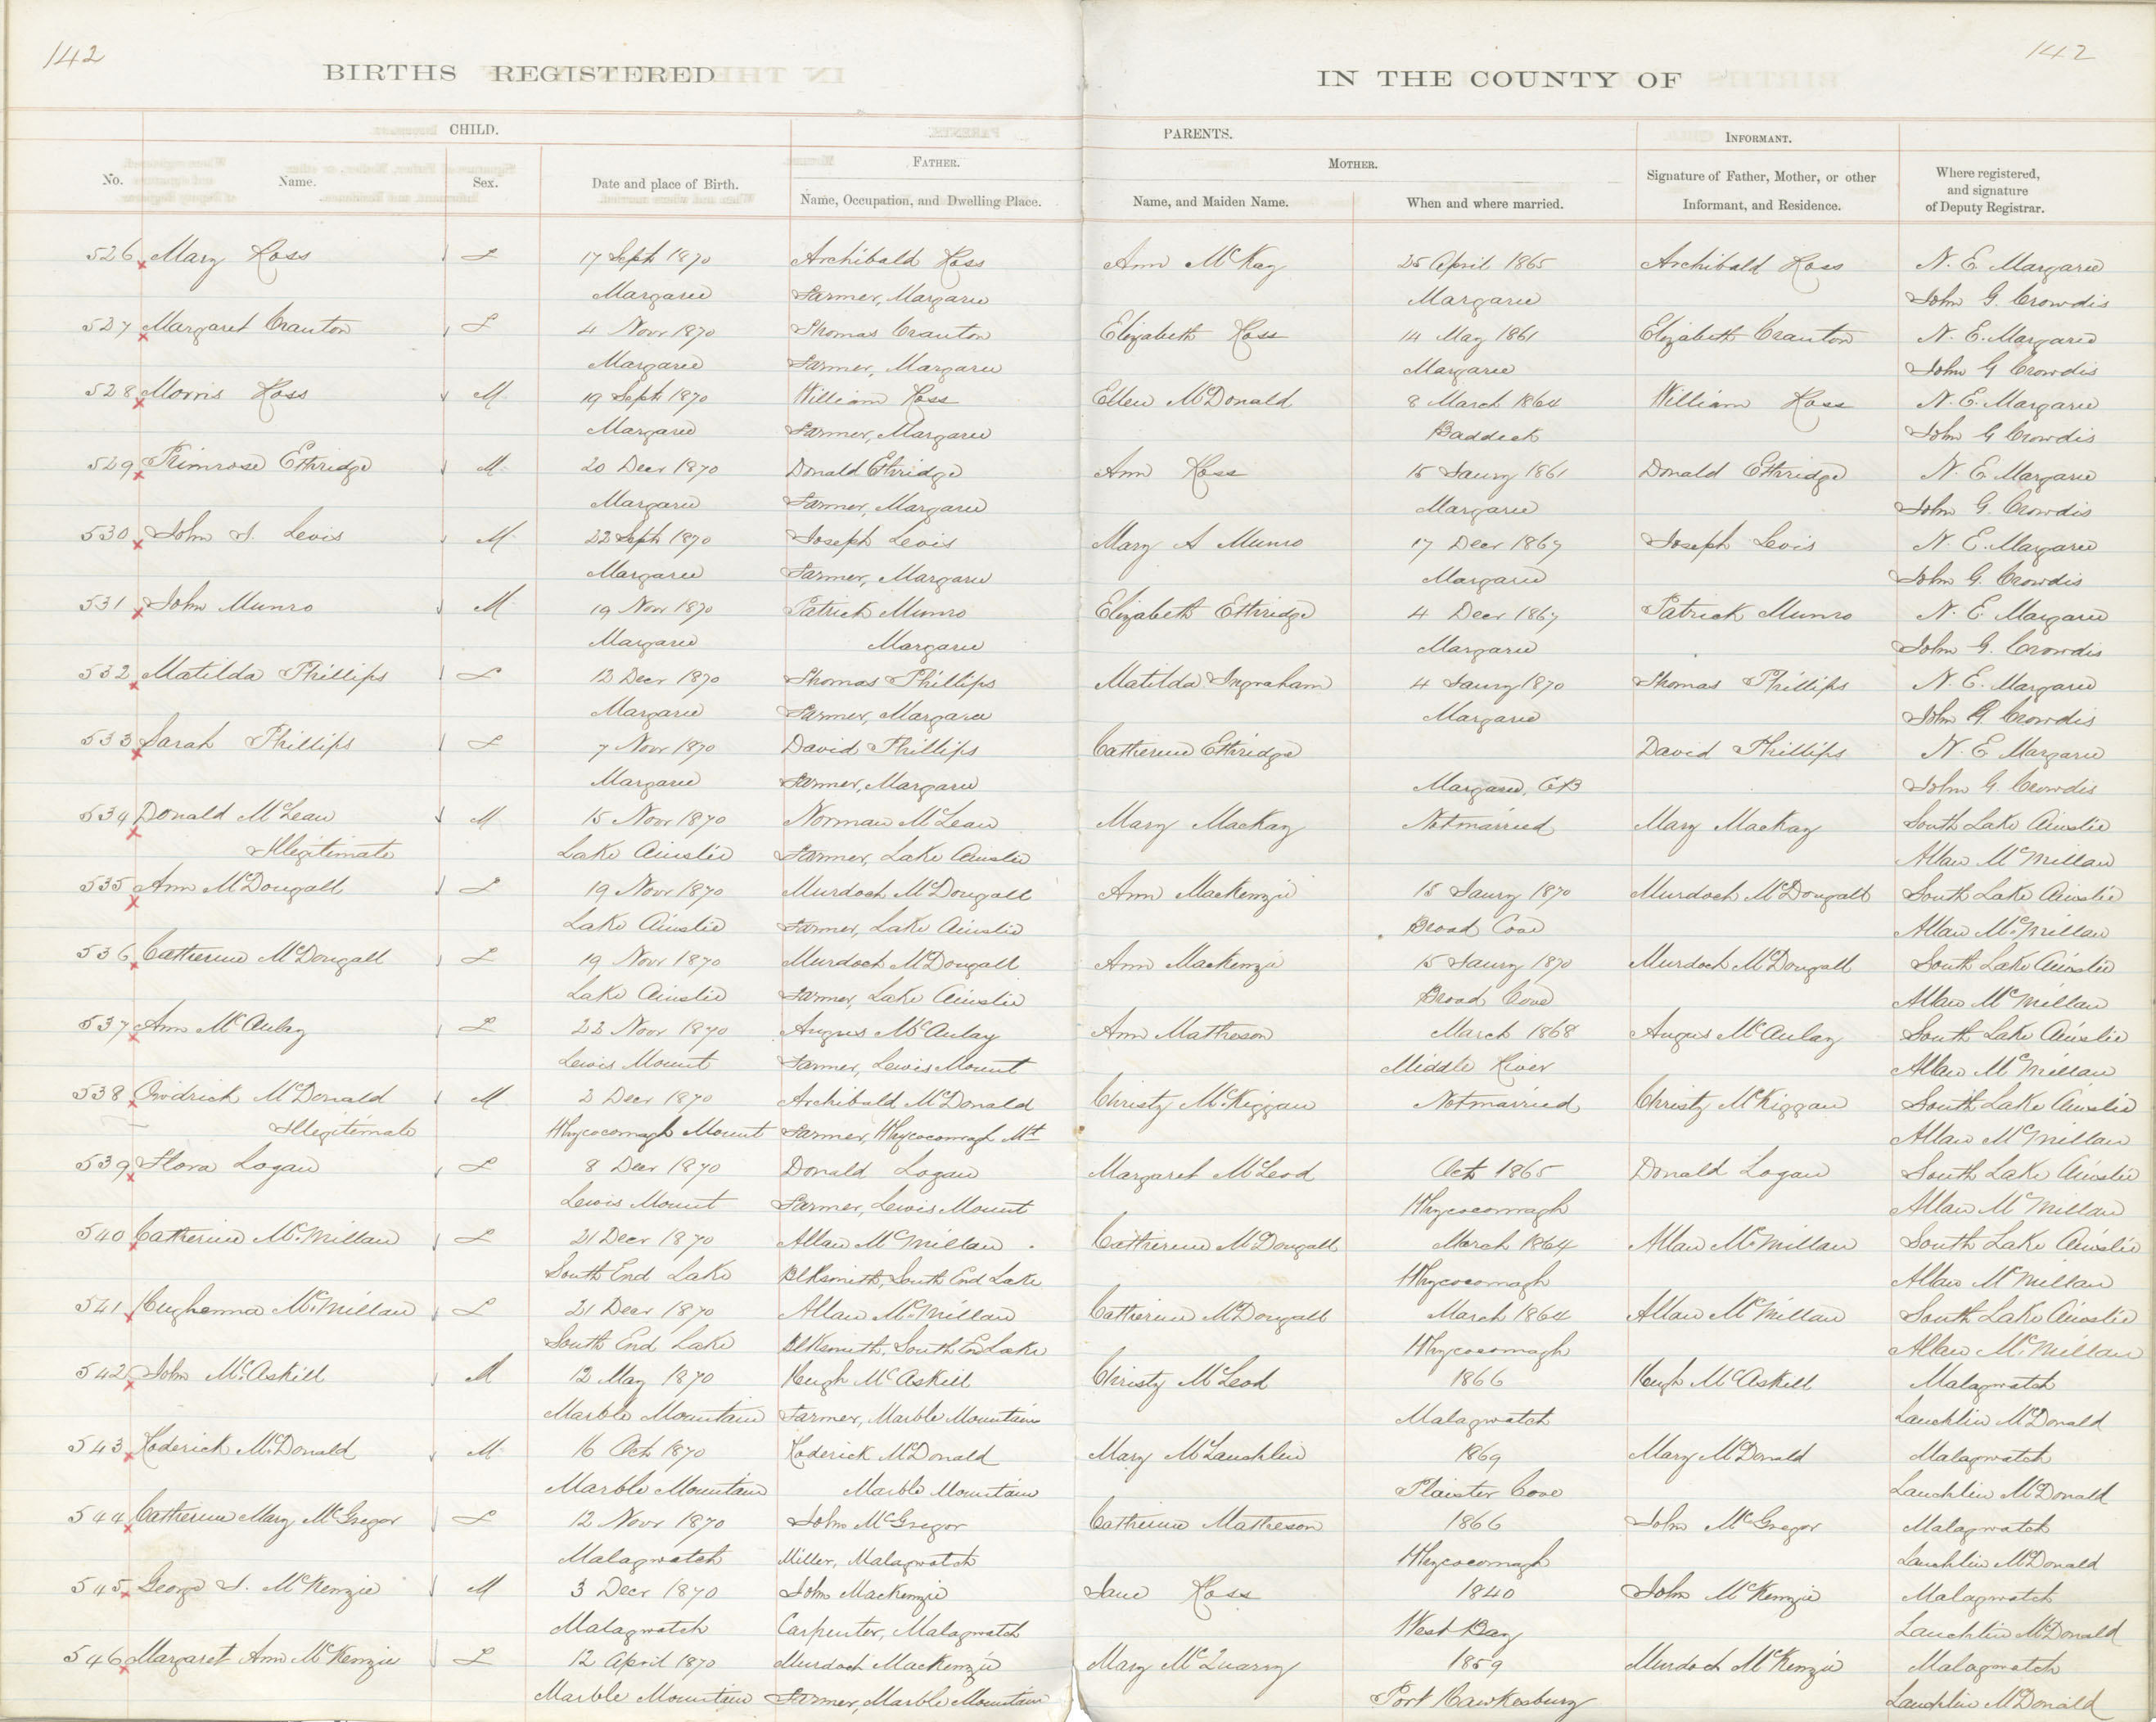 142
142
BIRTHS REGISTERED
IN THE COUNTY OF
CHILD.
PARENTS.
INFORMANT.
FATHER.
MOTHER.
No.
Name.
Sex.
Date and place of Birth.
Name, Occupation, and Dwelling Place.
Name, and Maiden Name.
When and where married.
Signature of Father, Mother, or other
Informant, and Residence.
Where registered,
and signature
of Deputy Registrar.
526 Mary Ross F 17 Sept 1870 Archibald Ross Ann McKay 25 April 1865 Archibald Ross N. E. Margaree
Margaree Farmer, Margaree Margaree John G. Crowdis
527 Margaret Cranton F 4 Novr 1870 Thomas Cranton Elizabeth Ross 14 May 1861 Elizabeth Cranton N. E. Margaree
Margaree Farmer, Margaree Margaree John G Crowdis
528 Morris Ross M 19 Sept 1870 William Ross Ellen McDonald 8 March 1864 William Ross N. E. Margaree
Margaree Farmer, Margaree Baddeck John G Crowdis
529 Primrose Ethridge M 20 Decr 1870 Donald Ethridge Ann Ross 15 Jany 1861 Donald Ethridge N. E. Margaree
Margaree Farmer, Margaree Margaree John G. Crowdis
530 John J. Levis M 22 Sept 1870 Joseph Levis Mary A Munro 17 Decr 1867 Joseph Levis N. E. Margaree
Margaree Farmer, Margaree Margaree John G. Crowdis
531 John Munro M 19 Novr 1870 Patrick Munro Elizabeth Ethridge 4 Decr 1867 Patrick Munro N. E. Margaree
Margaree Margaree Margaree John G. Crowdis
532 Matilda Phillips F 12 Decr 1870 Thomas Phillips Matilda Ingraham 4 Jany 1870 Thomas Phillips N. E. Margaree
Margaree Farmer, Margaree Margaree John G. Crowdis
533 Sarah Phillips F 7 Novr 1870 David Phillips Catherine Ethridge David Phillips N. E Margaree
Margaree Farmer, Margaree Margaree, CB John G Crowdis
534 Donald McLean M 15 Novr 1870 Norman McLean Mary MacKay Not married Mary MacKay South Lake Ainslie
Illegitimate Lake Ainslie Farmer, Lake Ainslie Allan McMillan
535 Ann McDougall F 19 Novr 1870 Murdoch McDougall Ann MacKenzie 15 Jany 1870 Murdoch McDougall South Lake Ainslie
Lake Ainslie Farmer, Lake Ainslie Broad Cove Allan McMillan
536 Catherine McDougall F 19 Novr 1870 Murdoch McDougall Ann MacKenzie 15 Jany 1870 Murdoch McDougall South Lake Ainslie
Lake Ainslie Farmer, Lake Ainslie Broad Cove Allan McMillan
537 Ann McAulay F 22 Novr 1870 Angus McAulay Ann Matheson March 1868 Angus McAulay South Lake Ainslie
Lewis Mount Farmer, Lewis Mount Middle River Allan McMillan
538 McDonald M 2 Decr 1870 Archibald McDonald Christy McKiggan Not married Christy McKiggan South Lake Ainslie
Illegitimate Whycocomagh Mount Farmer, Whycocomagh Mt Allan McMillan
539 Flora Logan F 8 Decr 1870 Donald Logan Margaret McLeod Oct 1865 Donald Logan South Lake Ainslie
Lewis Mount Farmer, Lewis Mount Whycocomagh Allan McMillan
540 Catherine McMillan F 21 Decr 1870 Allan McMillan Catherine McDougall March 1864 Allan McMillan South Lake Ainslie
South End Lake Blksmith, South End Lake Whycocomagh Allan McMillan
541 Hughenna McMillan F 21 Decr 1870 Allan McMillan Catherine McDougall March 1864 Allan McMillan South Lake Ainslie
South End Lake Blksmith, South End Lake Whycocomagh Allan McMillan
542 John McAskill M 12 May 1870 Hugh McAskill Christy McLeod 1866 Hugh McAskill Malagwatch
Marble Mountain Farmer, Marble Mountain Malagwatch Lauchlin McDonald
543 Roderick McDonald M 16 Oct 1870 Roderick McDonald Mary McLauchlin 1869 Mary McDonald Malagwatch
Marble Mountain Marble Mountain Plaister Cove Lauchlin McDonald
544 Catherine Mary McGregor F 12 Novr 1870 John McGregor Catherine Matheson 1866 John McGregor Malagwatch
Malagwatch Miller, Malagwatch Whycocomagh Lauchlin McDonald
545 George J. McKenzie M 3 Decr 1870 John MacKenzie Jane Ross 1840 John McKenzie Malagwatch
Malagwatch Carpenter, Malagwatch West Bay Lauchlin McDonald
546 Margaret Ann McKenzie F 12 April 1870 Murdoch MacKenzie Mary McQuarry 1859 Murdoch McKenzie Malagwatch
Marble Mountain Farmer, Marble Mountain Port Hawkesbury Lauchlin McDonald